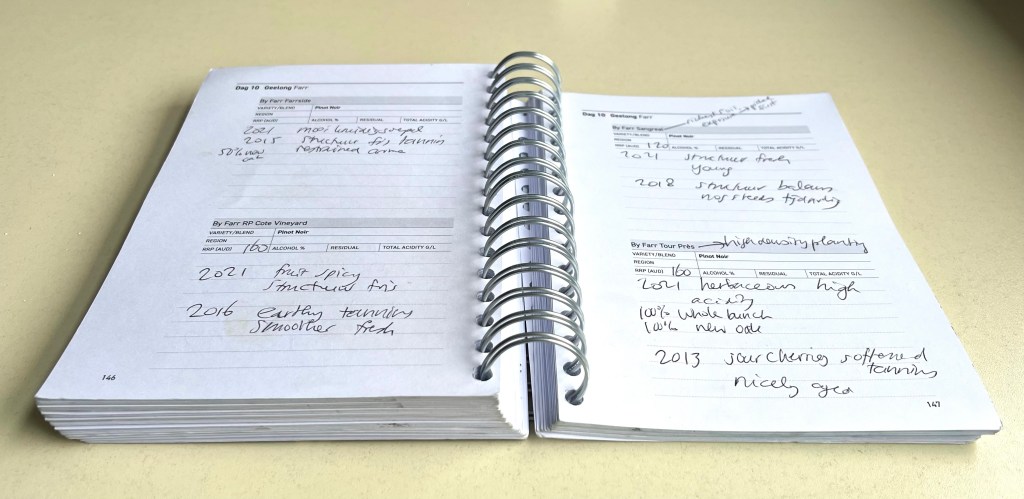 Dag 10 Geelong Farr
By Farr Farrside
VARIETY/BLEND Pinot Noir
REGION
RRP (AUD) ALCOHOL % RESIDUAL TOTAL ACIDITY G/L
2021 mooi
2015 structuur fris tannin
50% new oak restrained
By Farr RP Cote Vineyard
VARIETY/BLEND Pinot Noir
REGION
RRP (AUD) 160 ALCOHOL % RESIDUAL TOTAL ACIDITY G/L
2021 fruit spicy
structuur fris
2016 earthy tannins
smoother fresh
146
Dag 10 Geelong Farr
By Farr Sangreal
VARIETY/BLEND Pinot Noir
REGION
RRP (AUD) 120 ALCOHOL % RESIDUAL TOTAL ACIDITY G/L
2021 structuur fresh
young
2018 structuur balans
nog steeds
By Farr Tour Près → high density planting
VARIETY/BLEND Pinot Noir
REGION
RRP (AUD) 160 ALCOHOL % RESIDUAL TOTAL ACIDITY G/L
2021 herbaceous high
acidity
100% whole bunch
100% new oak
2013 sour cherries softened
tannins
nicely aged
147